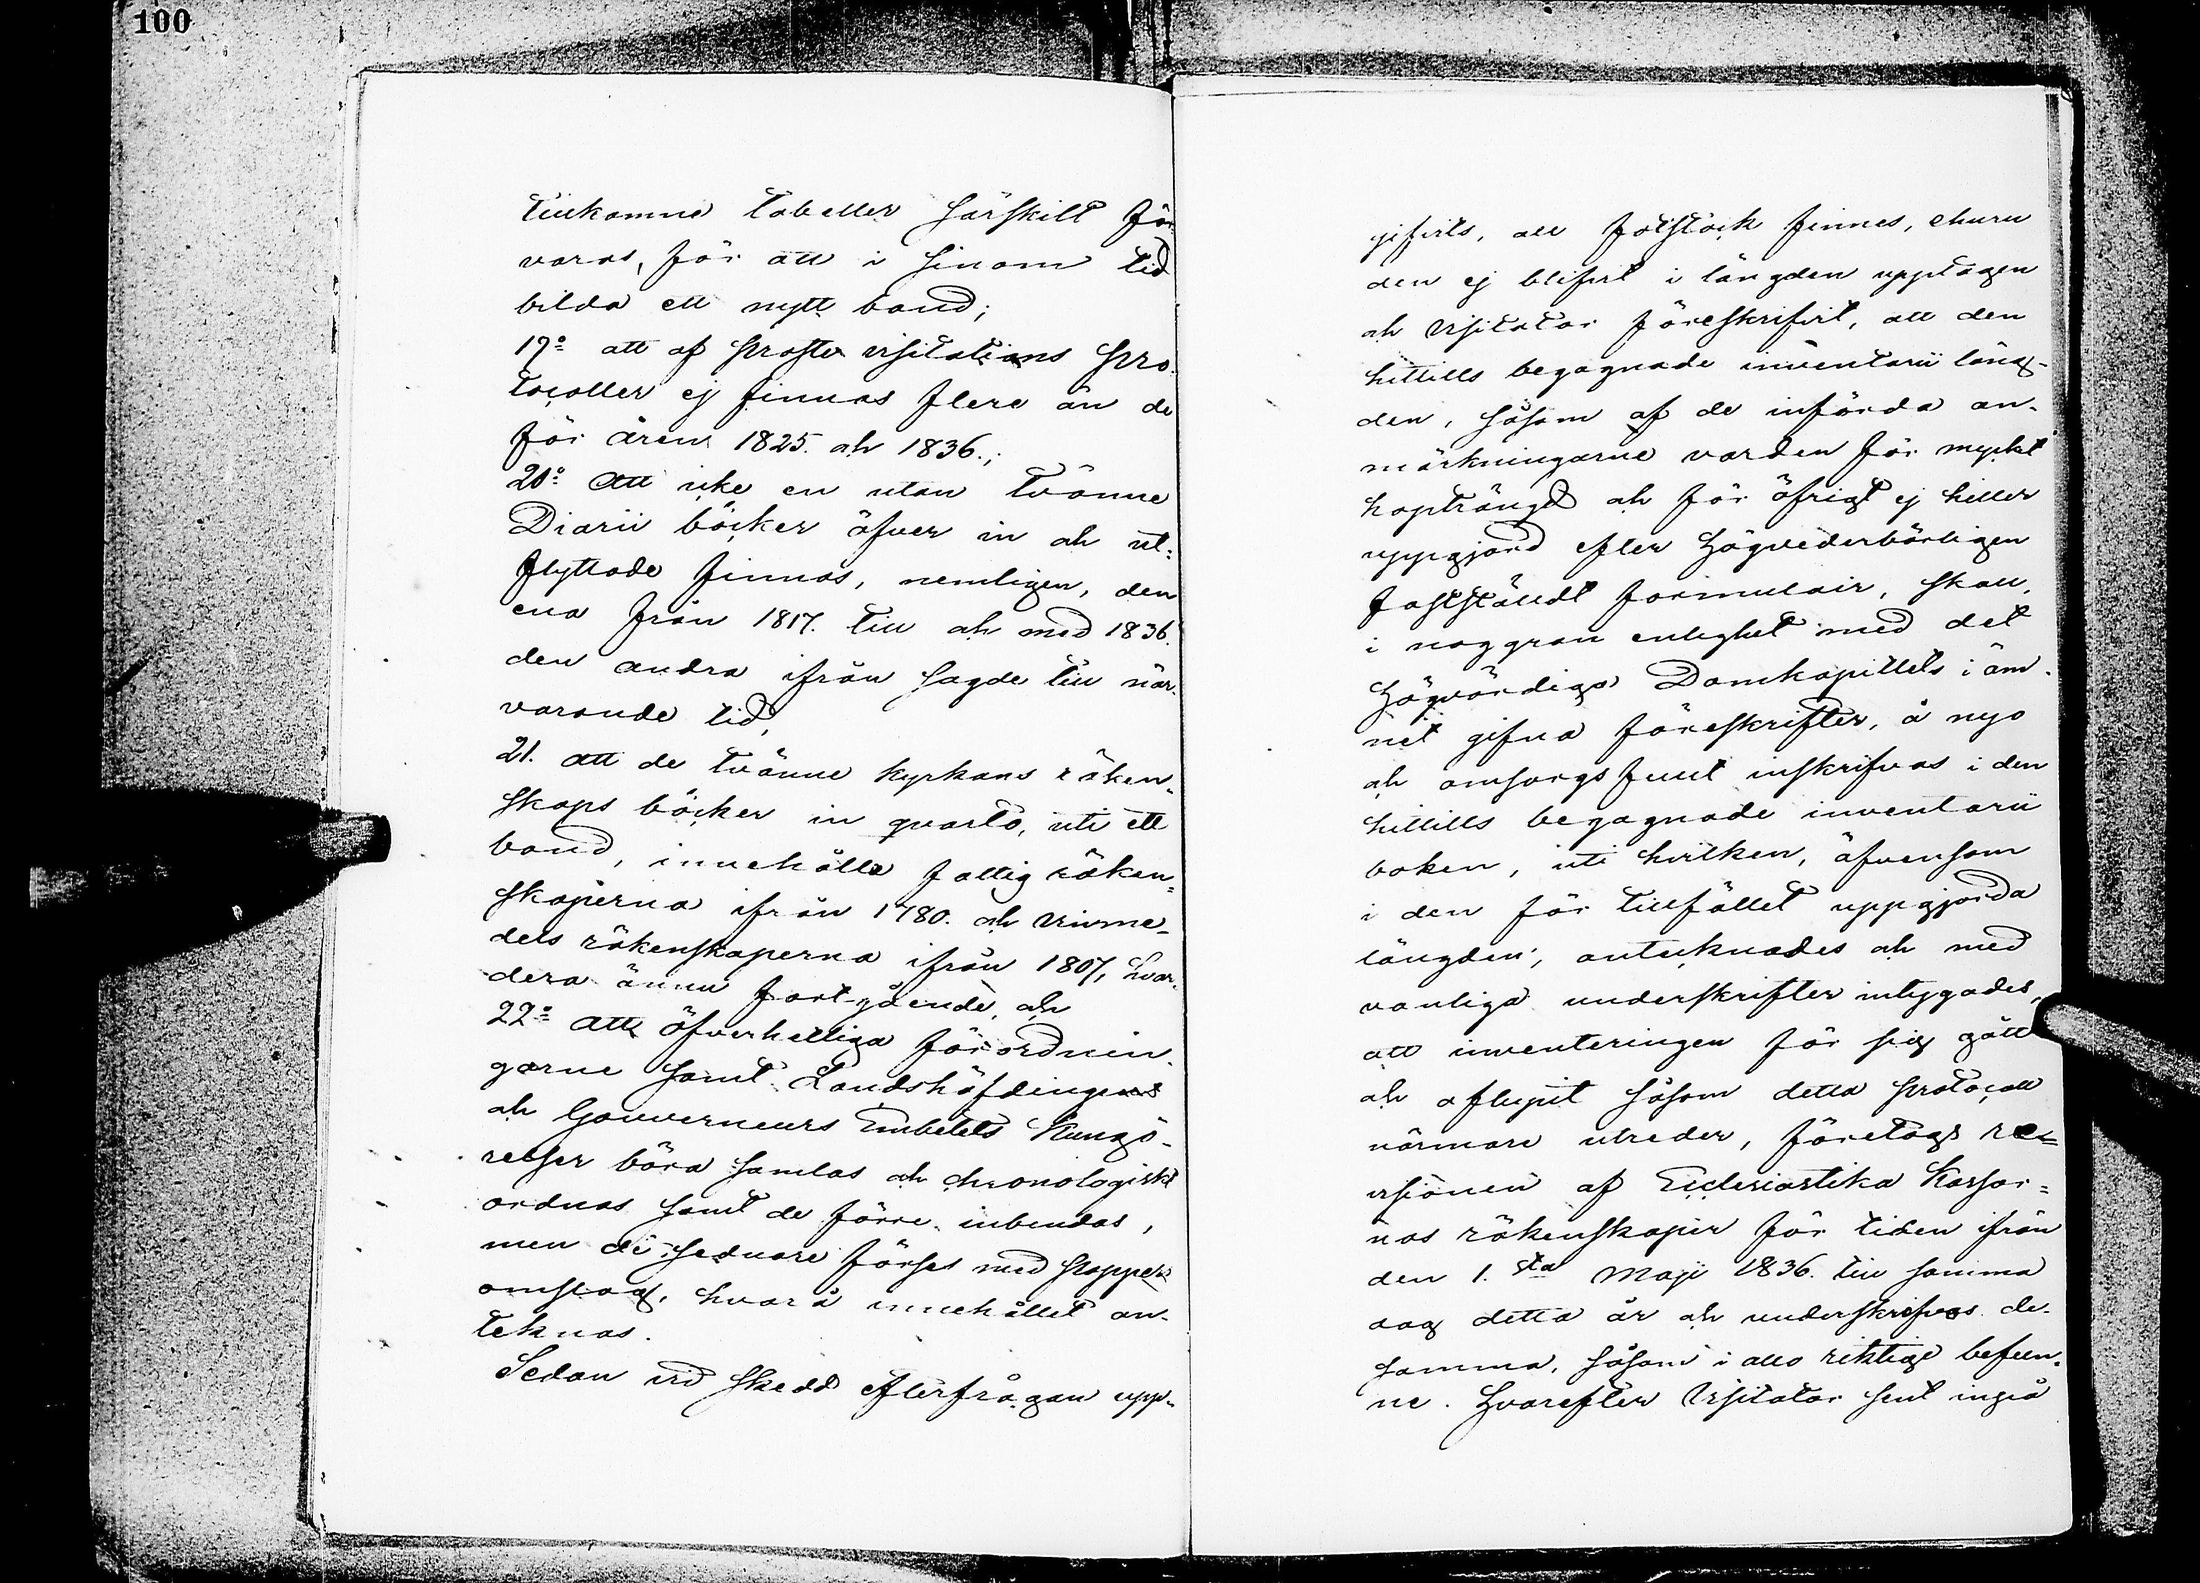 100
tillkomne tabeller särskilt för
varas, för att i sinom tid
bilda ett nytt band;
19º att af Proste visitations Pro
tocoller ej finnas flere än de
för åren 1825. och 1836.;
20º Att icke en utan tvänne
Diarii böcker öfver in och ut=
flyttade finnas, nemligen, den
ena från 1817. till och med 1836.
den andra ifrån sagde till när-
varande tid,
21. Att de tvänne kyrkans räken-
skaps böcker in qvarto, uti ett
band, innehålla fattig räken=
skaperna ifrån 1780. och vivme-
dels räkenskaperna ifrån 1807, hvar-
dera ännu fortgående, och
22º Att öfverhetliga förordnin-
garne samt Landshöfdingens
och Gouverneurs Embetets Kungö-
relser böra samlas och chronologiskt
ordnas samt de förre inbindas,
men de sednare förses med pappers
omslag, hvarå innehållet an-
teknas.
Sedan vid skedd efterfrågan upp-
gifvits, att fotstock finnes, churu
den ej blifvit i längden upptagen
och Visitator föreskrifvit, att den
hittills begagnade inventarii läng-
den, såsom af de införda an-
märkningarne vorden för mycket
hopträngd och för öfrigt ej heller
uppgjord efter högvederbörligen
fastställdt formulair, skall,
i noggran enlighet med det
Högvördiga Domkapitlets i äm-
net gifna föreskrifter, å nyo
och omsorgsfullt inskrifvas i den
hittills begagnade inventarii
boken, uti hvilken, äfvensom
i den för tillfället uppgjorda
längden, anteknades och med
vanliga underskrifter intygades,
att inventeringen för sig gått
och aflupit såsom detta Protocoll
närmare utreder, företogs re=
visionen af Ecclesiastika Kassor=
nas räkenskaper för tiden ifrån
den 1.sta Maji 1836. till samma
dag detta år och underskrefvos de-
samma, såsom i allo riktige befun-
ne. Hvarefter Visitator sent ingå